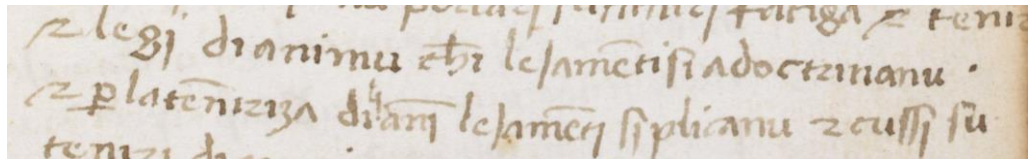 fatiga ⁊ teniri
⁊ legi di animu chi lesamēti si adoctrinanu ·
⁊ ꝑ la tēniriza di li anni lesamēti si plicanu ⁊ cussi su
teniri di